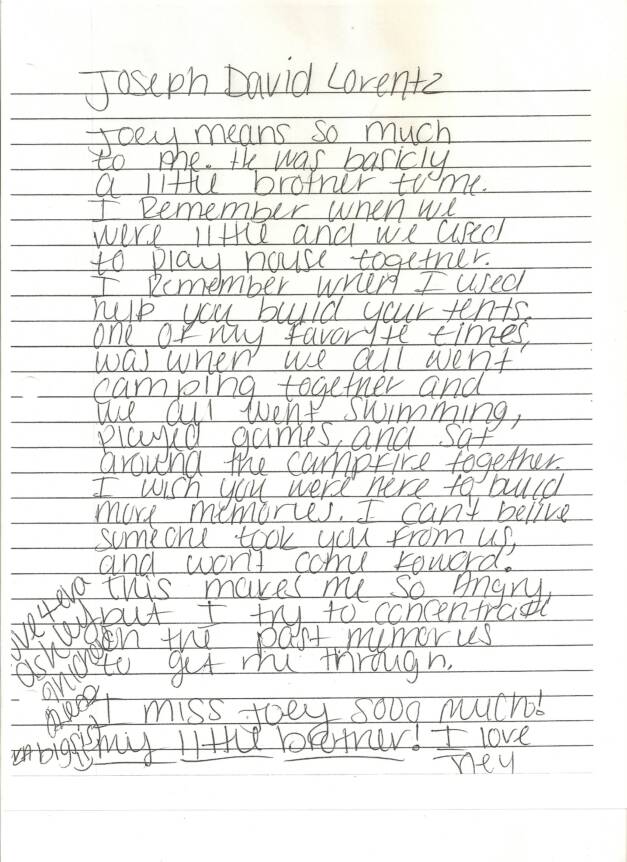 Joseph David Lorentz
Joey means so much
to me. He was basicly
a little brother to me.
I Remember when we
were little and we used
to play house together.
I Remember when I used
help you build your tents.
one of my favoryte times,
was when we all went
camping together and
we all went swimming,
played games, and sat
around the campfire together.
I wish you were here to build
more memories. I can't belive
someone took you from us,
and won't come foward.
this makes me so Angry,
but I try to concentrate
on the past memories
to get me through.
I miss Joey sooo much!
my little brother! I love
Joey
Ashley